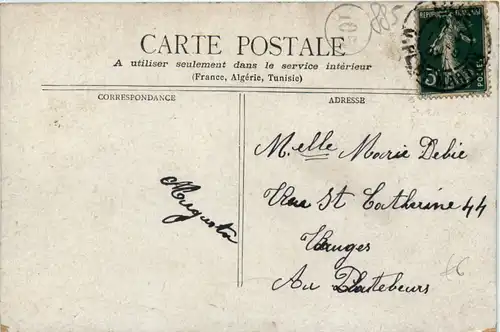 885
CARTE POSTALE
A utiliser seulement dans le service intérieur
(France, Algérie, Tunisie)
CORRESPONDANCE
ADRESSE
REPUBLIQUE FRANÇAISE
POSTES
Melle Marie Debie
Rue St Catherine 44
Augusta
Au